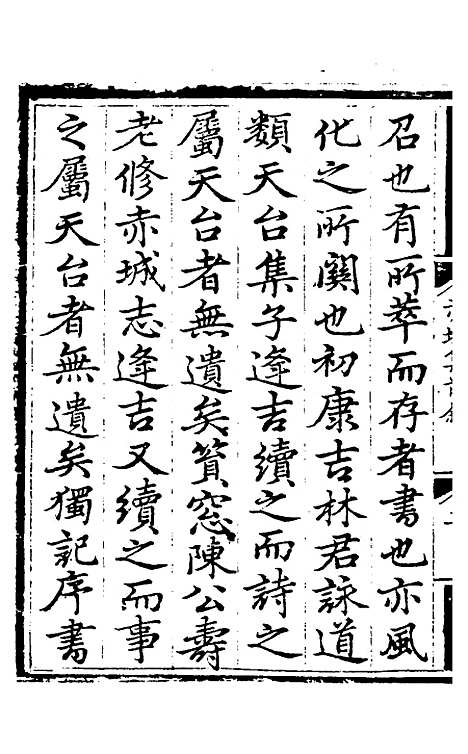 召也有所萃而存者書也亦風
化之所闗也初康吉林君詠道
類天台集子逢吉續之而詩之
屬天台者無遺矣篔窓陳公壽
老修赤城志逢吉又續之而事
之屬天台者無遺矣獨記序書